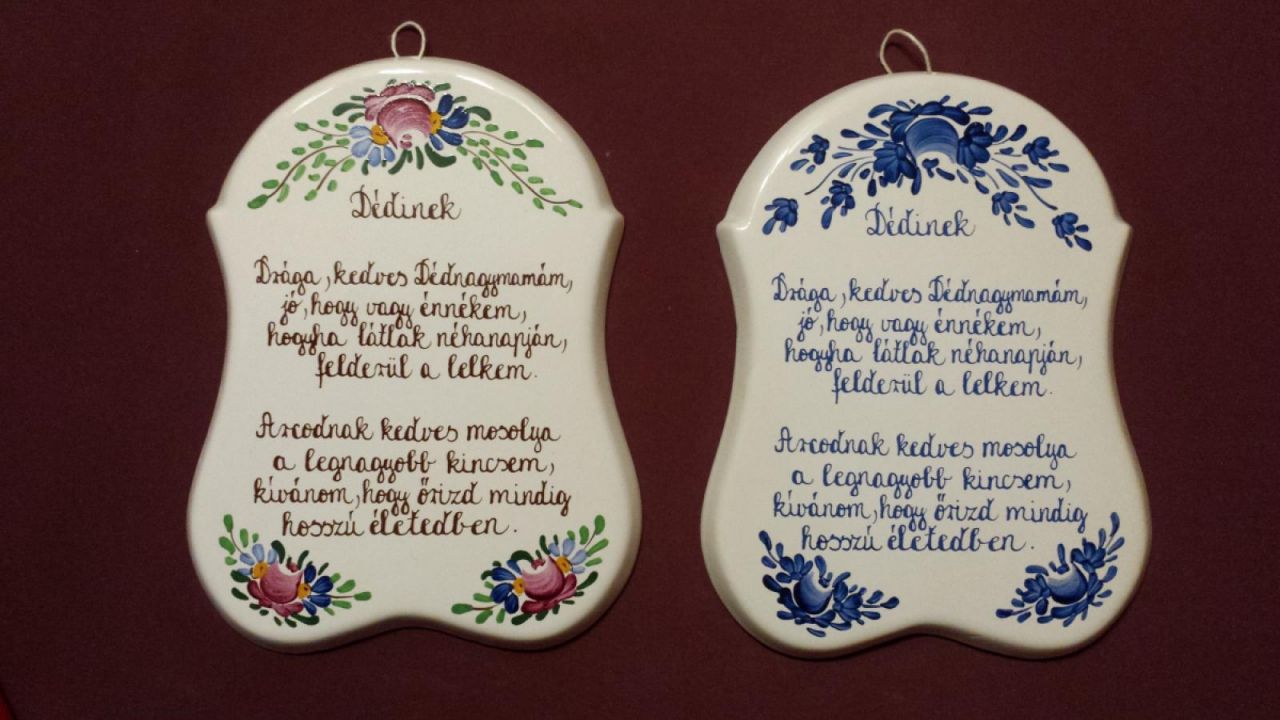 Dédinek
Drága, kedves Dédnagymamám,
jó, hogy vagy énnékem,
hogyha látlak néhanapján,
felderül a lelkem.
Arcodnak kedves mosolya
a legnagyobb kincsem,
kívánom, hogy őrizd mindig
hosszú életedben.
Dédinek
Drága, kedves Dédnagymamám,
jó, hogy vagy énnékem,
hogyha látlak néhanapján,
felderül a lelkem.
Arcodnak kedves mosolya
a legnagyobb kincsem,
kívánom, hogy őrizd mindig
hosszú életedben.